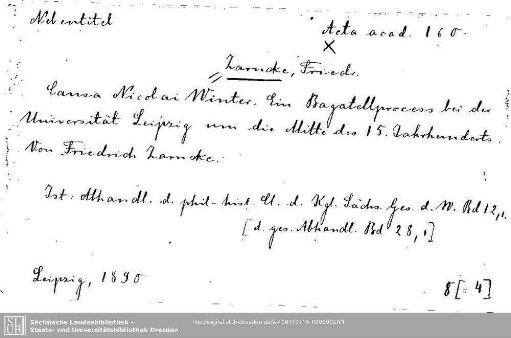 Nebentitel
Acta acad. 160.
Zarncke, Friedr.
Causa Nicolai Winter. Ein Bagatellprocess bei der
Universität Leipzig um die Mitte des 15. Jahrhunderts.
Von Friedrich Zarncke.
Ist: Abhandl. d. phil-hist. Cl. d. Kgl. Sächs. Ges. d. W. Bd 12,1.
[d. ges. Abhandl. Bd 28,1]
Leipzig, 1890
8[: 4]
SLUB
Sächsische Landesbibliothek –
Staats- und Universitätsbibliothek Dresden